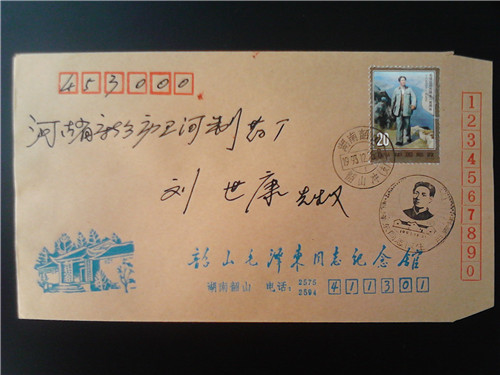 453000
河南省新乡市卫河制药厂
刘世康先收
20
湖南韶山
韶山冲
韶山毛泽东同志纪念馆
湖南韶山 电话: 2575
2594
411301
1234567890